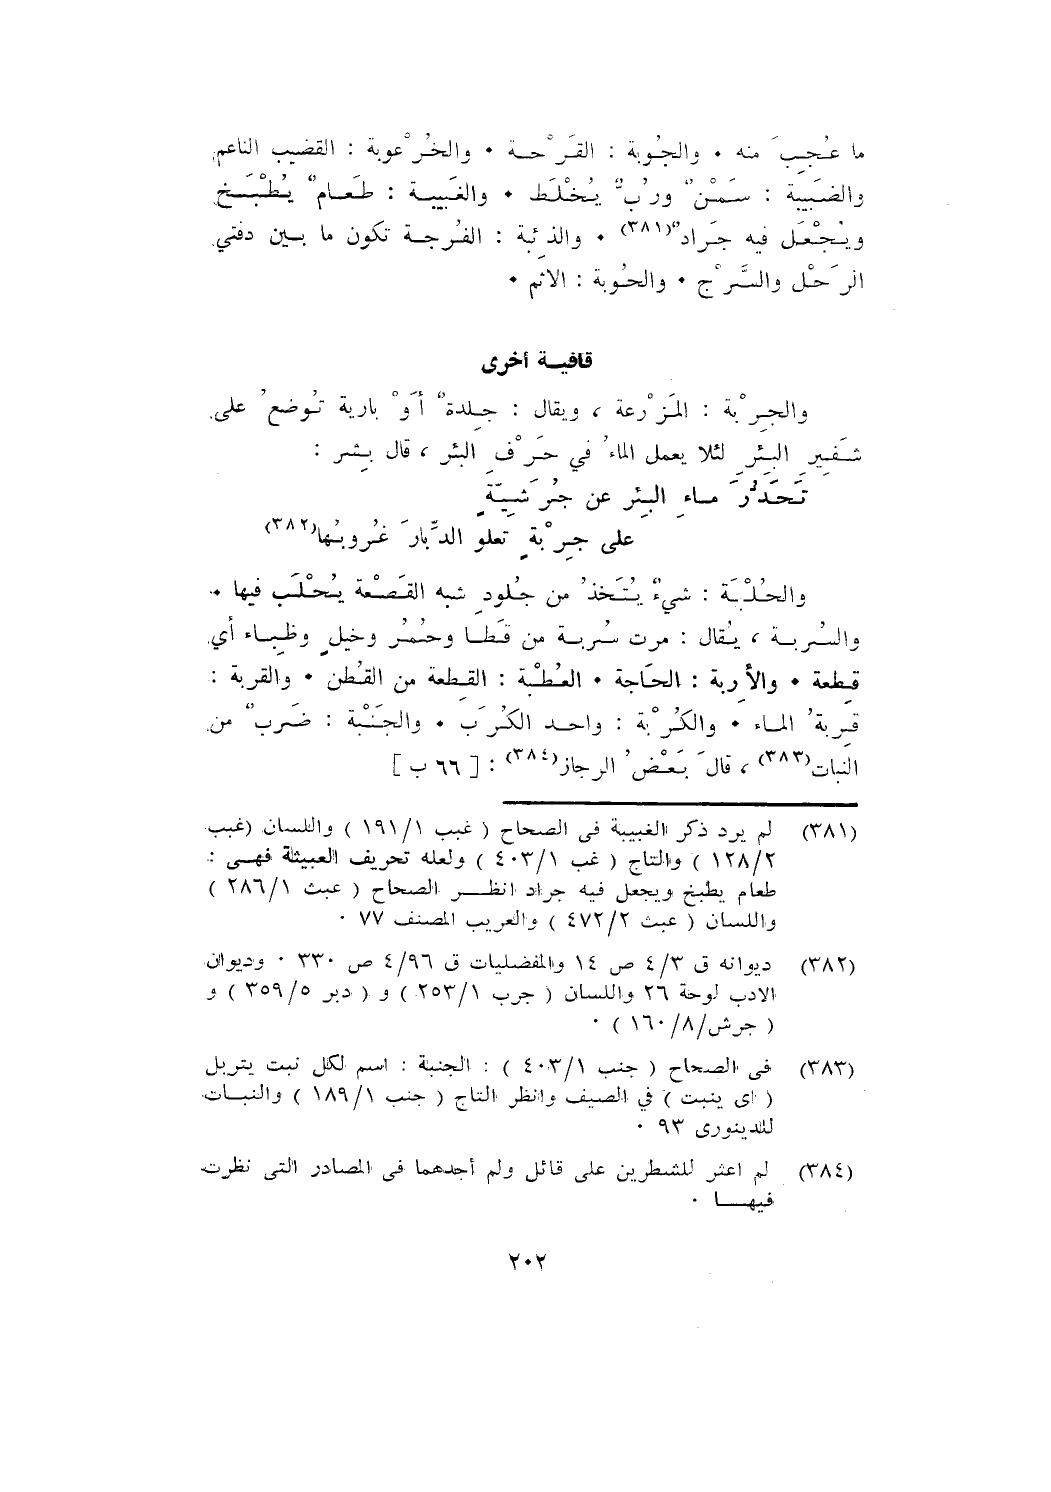 ما عُجِبَ منه ٠ والجُوبة : القَرْحـة ٠ والخُرْعوبة : القضيب الناعم.
والضَبِيبة : سَمْنٌ ورُبٌّ يُخْلَط ٠ والغَبِيبة : طَعامٌ يُطْبَخ
ويُجْعَل فيه جَرادٌ(٣٨١) ٠ والذِئبة : الفُرجة تكون ما بـين دفتي
الرَحْل والسَّرْج ٠ والحُوبة : الاثم ٠
قافيـة أخرى
والجِرْبة : المَزْرعة ، ويقال : جِلدةٌ أَوْ بارية تُوضعُ على
شَفِيرِ البِئرِ لئلا يعمل الماءُ في حَرْفِ البئر ، قال بِشر :
تَحَدُّرَ مـاءِ البِئر عن جُرَشِيّةٍ
على جِرْبةٍ تعلو الدِّبارَ غُروبُها(٣٨٢)
والحُلْبَة : شيءٌ يُتَخذُ من جُلودٍ شبه القَصْعة يُحْلَب فيها ٠
والسُربـة ، يُقال : مرت سُربـة من قَطـا وحُمُر وخيلٍ وظِباء أي
قِطعة ٠ والأرِبة : الحَاجة ٠ العُطْبة : القِطعة من القُطن ٠ والقربة :
قِربةُ المـاء ٠ والكُرْبة : واحـد الكُرَب ٠ والجَنْبة : ضَربٌ من
النبات(٣٨٣) ، قالَ بَعْضُ الرجاز(٣٨٤) : [ ٦٦ ب ]
(٣٨١) لم يرد ذكر الغبيبة فى الصحاح ( غبب ١٩١/١ ) واللسان (غبب
١٢٨/٢ ) والتاج ( غب ٤٠٣/١ ) ولعله تحريف العبيثة فهـى :
طعام يطبخ ويجعل فيه جراد انظـر الصحاح ( عبث ٢٨٦/١ )
واللسان ( عبث ٤٧٢/٢ ) والغريب المصنف ٧٧ ٠
(٣٨٢) ديوانه ق ٤/٣ ص ١٤ والمفضليات ق ٤/٩٦ ص ٣٣٠ ٠ وديوان
الادب لوحة ٢٦ واللسان ( جرب ٢٥٣/١ ) و ( دبر ٣٥٩/٥ ) و
( جرش/١٦٠/٨ ) ٠
(٣٨٣) فى الصحاح ( جنب ٤٠٣/١ ) : الجنبة : اسم لكل نبت يتربل
( اى ينبت ) في الصيف وانظر التاج ( جنب ١٨٩/١ ) والنبـات
للدينورى ٩٣ ٠
(٣٨٤) لم اعثر للشطرين على قائل ولم أجدهما فى المصادر التى نظرت
فيهـا ٠
٢٠٢